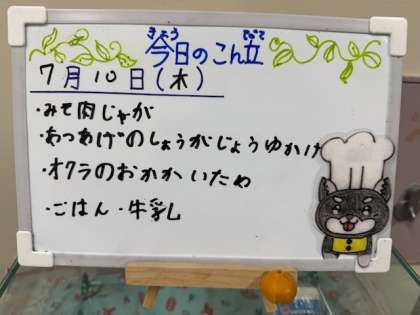 今日のこん立
7月10日(木)
・みそ肉じゃが
・あつあげのしょうがじょうゆかけ
・オクラのおかかいため
・ごはん ・牛乳